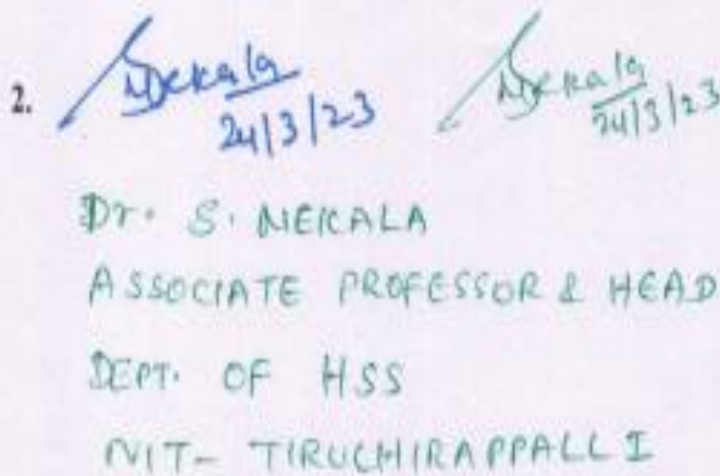 2. SMekala SMekala
24/3/23 24/3/23
Dr. S. MEKALA
ASSOCIATE PROFESSOR & HEAD
DEPT. OF HSS
NIT- TIRUCHIRAPPALLI